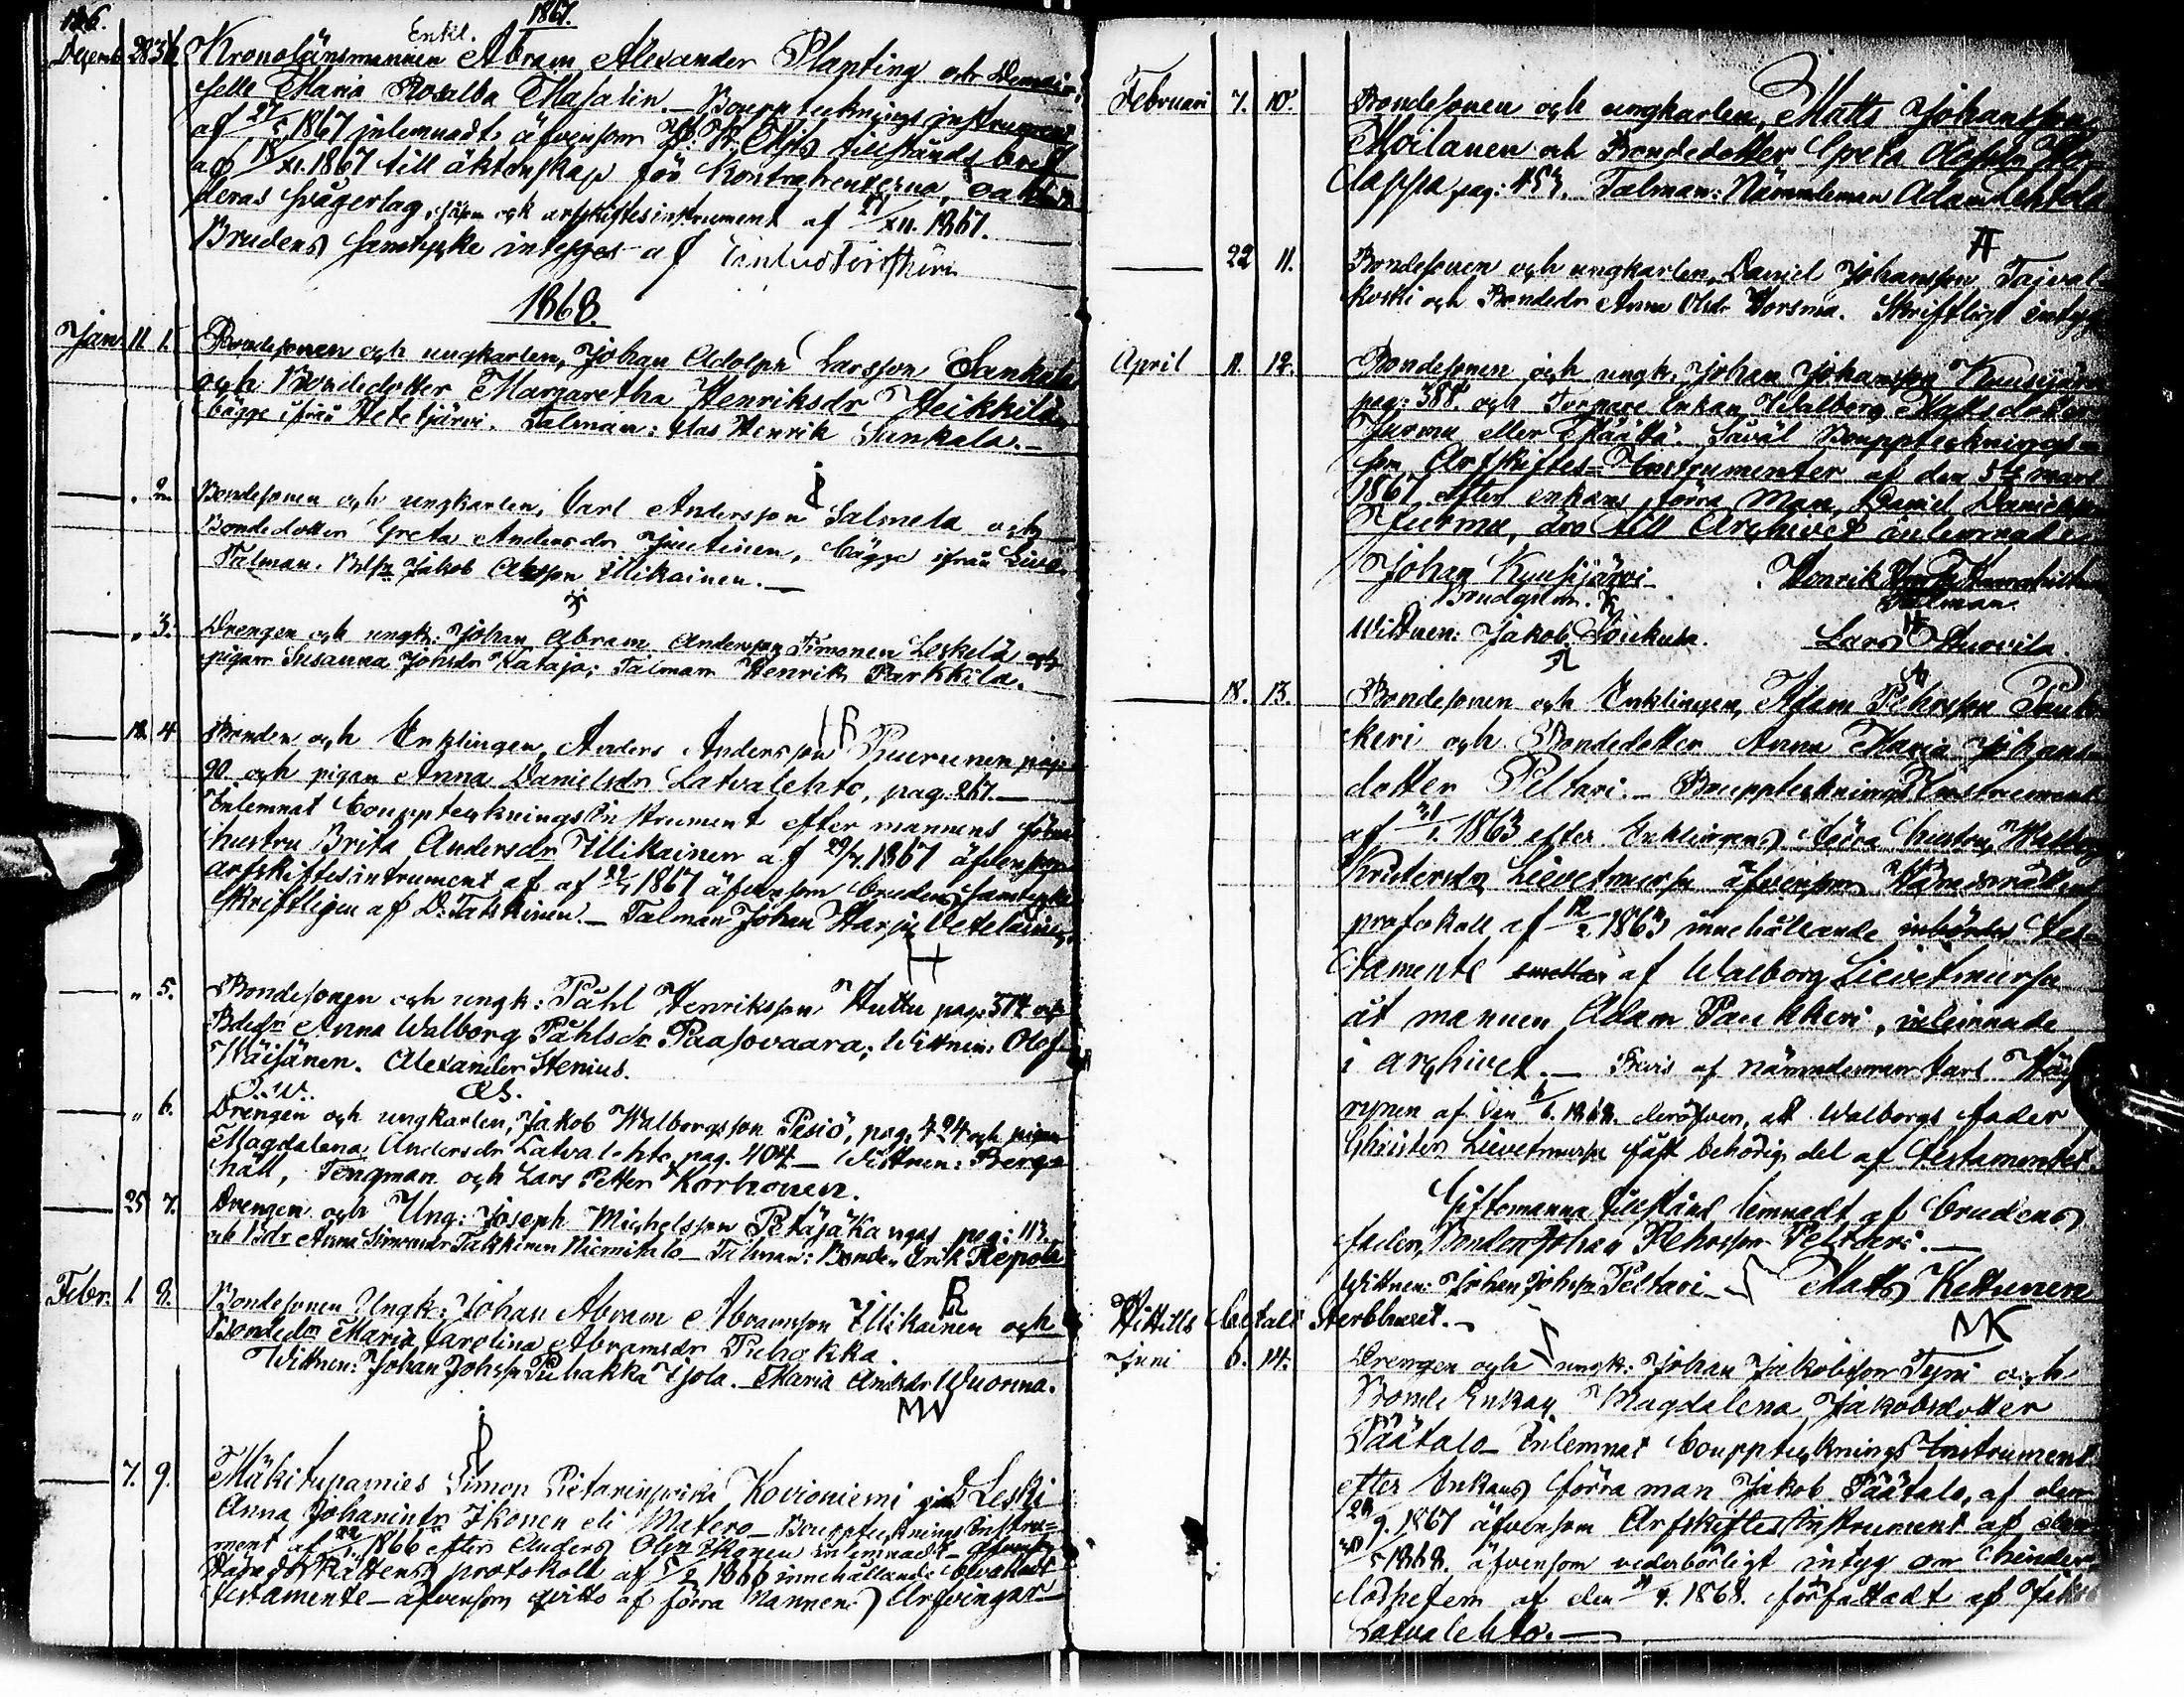 126.
1867.
Enkl.
Decemb. 28 36 Kronolänsmannen Abram Alexander Planting och Demoi-
selle Maria Rosalba Masalin. Boupptecknings instrument
af 1867 inlemnadt äfvensom tillstånds bref
af 18/XI. 1867 till äktenskap för Kontrahenterna,
deras svågerlag, som ock arfskiftesinstrument af XII. 1867.
Brudens samtycke intygas af
1868.
Jan. 11 1. Bondesonen och ungkarlen, Johan Adolph Larsson Sankala
och Bondedotter Margaretha Henriksdr Heikkilä,
bägge ifrån Hetejärvi. Talman: Clas Henrik Sankala.
„ 2. Bondesonen och ungkarlen, Carl Andersson Salmela och
Bondedotter Greta Andersdr Juutinen, bägge ifrån
Talman. Jakob Abrsson Illikainen.
„ 3. Drengen och ungk: Johan Abram Andersson Timonen Leskelä och
pigan Susanna Johsdr Kataja; Talman Henrik Parkkila.
18. 4 Bonden och Enklingen, Anders Andersson Puurunen pag:
90. och pigan Anna Danielsdr Latvalehto, pag. 267.
Inlemnat Bouppteckningsinstrument efter mannens förra
hustru Brita Andersdr Illikainen af 1867 äfvensom
arfskiftesintrument af af 1867 äfvensom brudens samtycke
skriftligen af D. Takkinen. Talman Johan Harju Veteläinen.
„ 5. Bondesonen och ungk: Påhl Henriksson Huttu pag: 374 och
Bdedr Anna Walborg Påhlsdr Paasovaara; Wittnen: Olof
Wäisänen. Alexander Stenius.
O. W. A. S.
„ 6. Drengen och ungkarlen, Jakob Walborgsson Pesiö, pag. 424 och pigan
Magdalena Andersdr Latvalehto pag. 404 Wittnen: Berg-
häll, Tengman och Lars Petter Korhonen.
25 7. Drengen och Ung: Joseph Michelsson Petäjäkangas pag: 113.
och Bdr Anna Simonsdr Takkinen Niemitalo Talman: Bonden Erik Repola
Febr: 1. 8. Bondesonen Ungk: Johan Abram Abramsson Illikainen och
Bondedr Maria Carolina Abramsdr Puhakka
Wittnen: Johan Johsson Puhakka Maria Andsdr Wuorma.
MW
7. 9. Mäkitupamies Simon Pietarinpoika Kovioniemi ja Leski
Anna Johanintr Ikonen eli Matero Bouppteckningsinstru-
ment af 1866 efter Anders Ikonen inlemnadt
Häradsrättens protokoll af 1866 innehållande
testamente äfvensom qvitto af förra mannens Arfvingar
Februari 7. 10. Bondesonen och ungkarlen, Matts Johansson
Moilanen och Bondedotter Greta
pag: 453. Talman: Nämndeman Adam Lehtola
22 11. Bondesonen och ungkarlen, Daniel Johansson Taival-
koski och Bondedr Anna Olsdr Horsma. Skriftligt intyg
April 11. 12. Bondesonen och ungk. Johan Johansson Kuusijärvi
pag: 388. och Torpare Enkan Walborg Mattsdotter
Jurmu eller Määttä. Såväl Boupptecknings-
som Arfskiftes-Instrumenter af den 5te mars
1867 efter enkans förra Man, Daniel Danielsson
Jurmu, äro till Archivet inlemnade.
Johan Kuusijärvi Henrik
Brudgum. Talman.
Wittnen: Jakob Loukusa. Lars Hurvila.
18. 13. Bondesonen och Enklingen, Adam Pehrsson Pauk-
keri och Bondedotter Anna Maria Johans-
dotter Peltari. Boupptecknings Instrument
af 1863 efter Enklingens förra hustru, Walborg
Kristersdr Lievetmursu äfvensom Häradsrättens
protokoll af 12/2 1863 innehållande inbördes Tes-
tamente emellan af Walborg Lievetmursu
åt mannen Adam Paukkeri, inlemnade
i archivet. Bevis af nämndeman Carl Häy-
rynen af den 1868 deröfver, att Walborgs fader
Christer Lievetmursu fått behörig del af testamentet.
Giftomanna tillstånd lemnadt af brudens
fader, Bonden Johan Pehrsson Peltari.
Wittnen: Johan Johsson Peltari Matts Kettunen
MK
Hittills betalt Sterbhuset.
Juni 6. 14. Drengen och ungk: Johan Jakobsson Tyni och
Bonde Enkan Magdalena Jakobsdotter
Päätalo Inlemnat Boupptecknings Instrument
efter Enkans förra man Jakob Päätalo, af den
9. 1867 äfvensom Arfskiftes Instrument af den
1868. äfvensom vederbörligt intyg om hinders-
löshetem af den 1868. författadt af Jakob
Latvalehto.